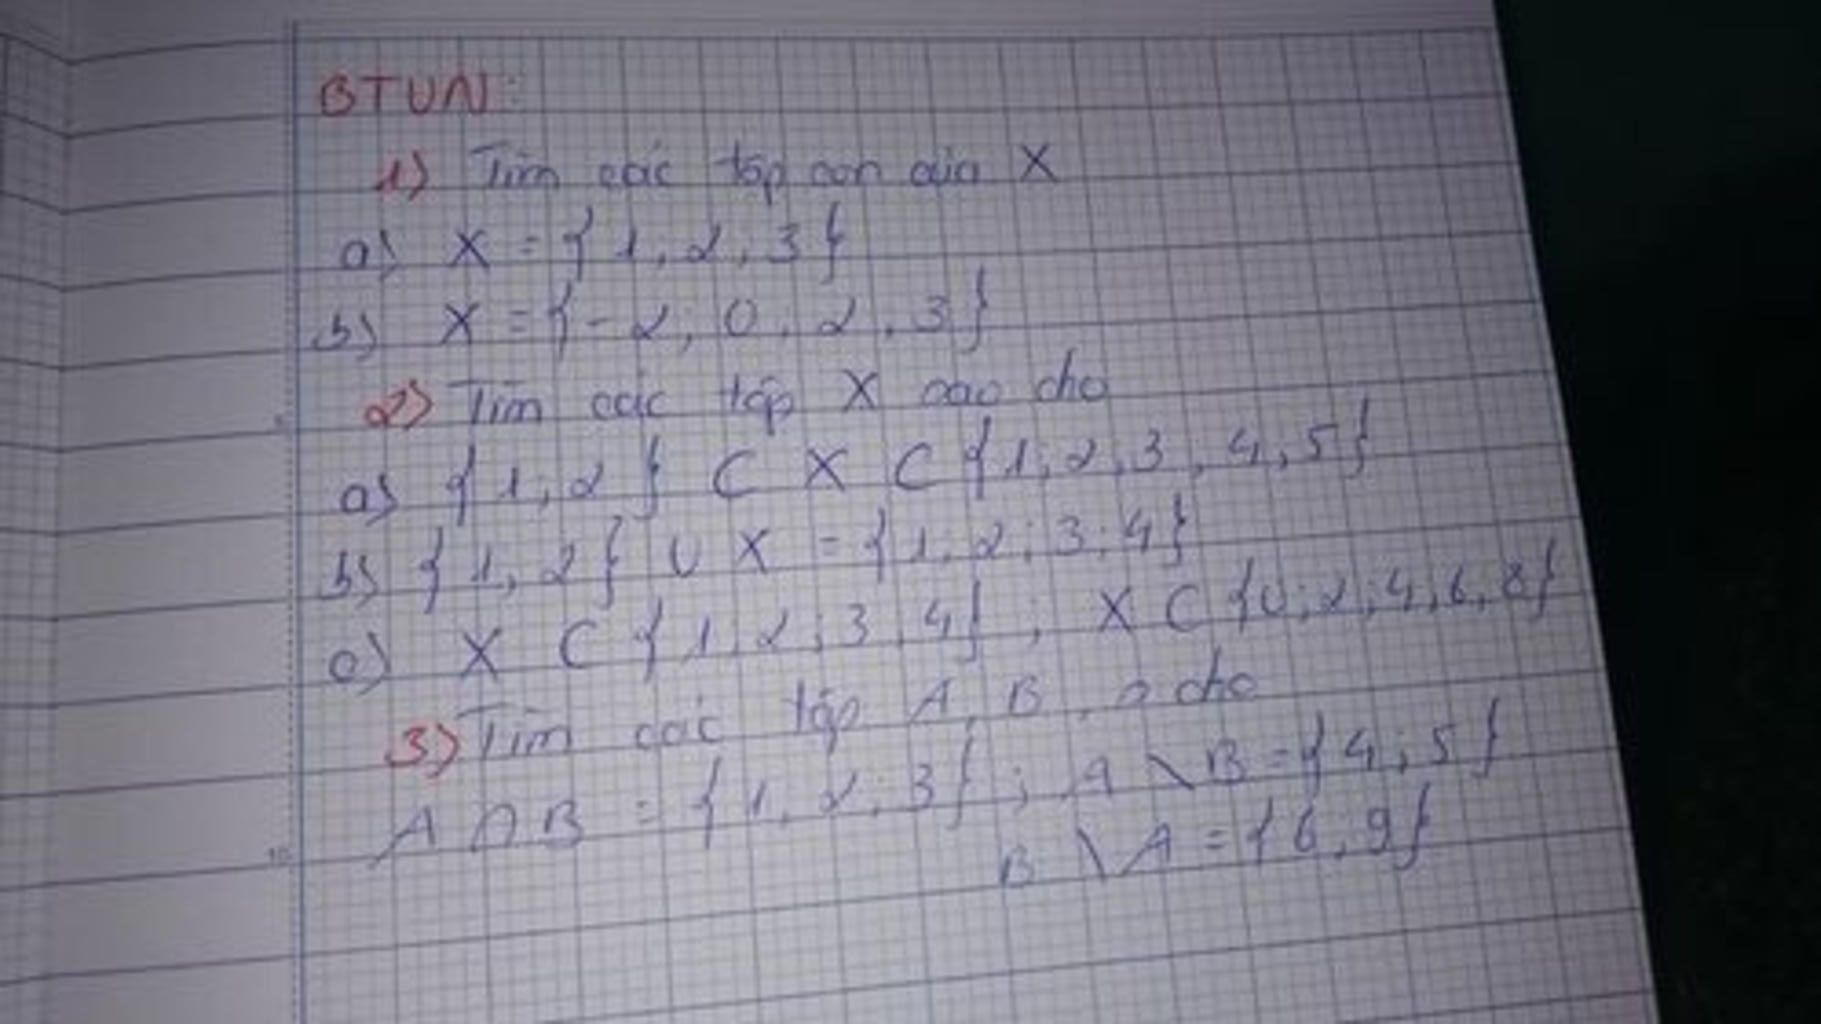 BTVN:
1) Tìm các tập con của X
a) X = { 1, 2, 3 }
b) X = { -2, 0, 2, 3 }
2) Tìm các tập X sao cho
a) { 1, 2 } ⊂ X ⊂ { 1, 2, 3, 4, 5 }
b) { 1, 2 } ∪ X = { 1; 2; 3; 4 }
c) X ⊂ { 1, 2; 3, 4 } ; X ⊂ { 0; 2; 4, 6, 8 }
3) Tìm các tập A, B, s cho
A ∩ B = { 1, 2, 3 } ; A \ B = { 4; 5 }
B \ A = { 6, 9 }